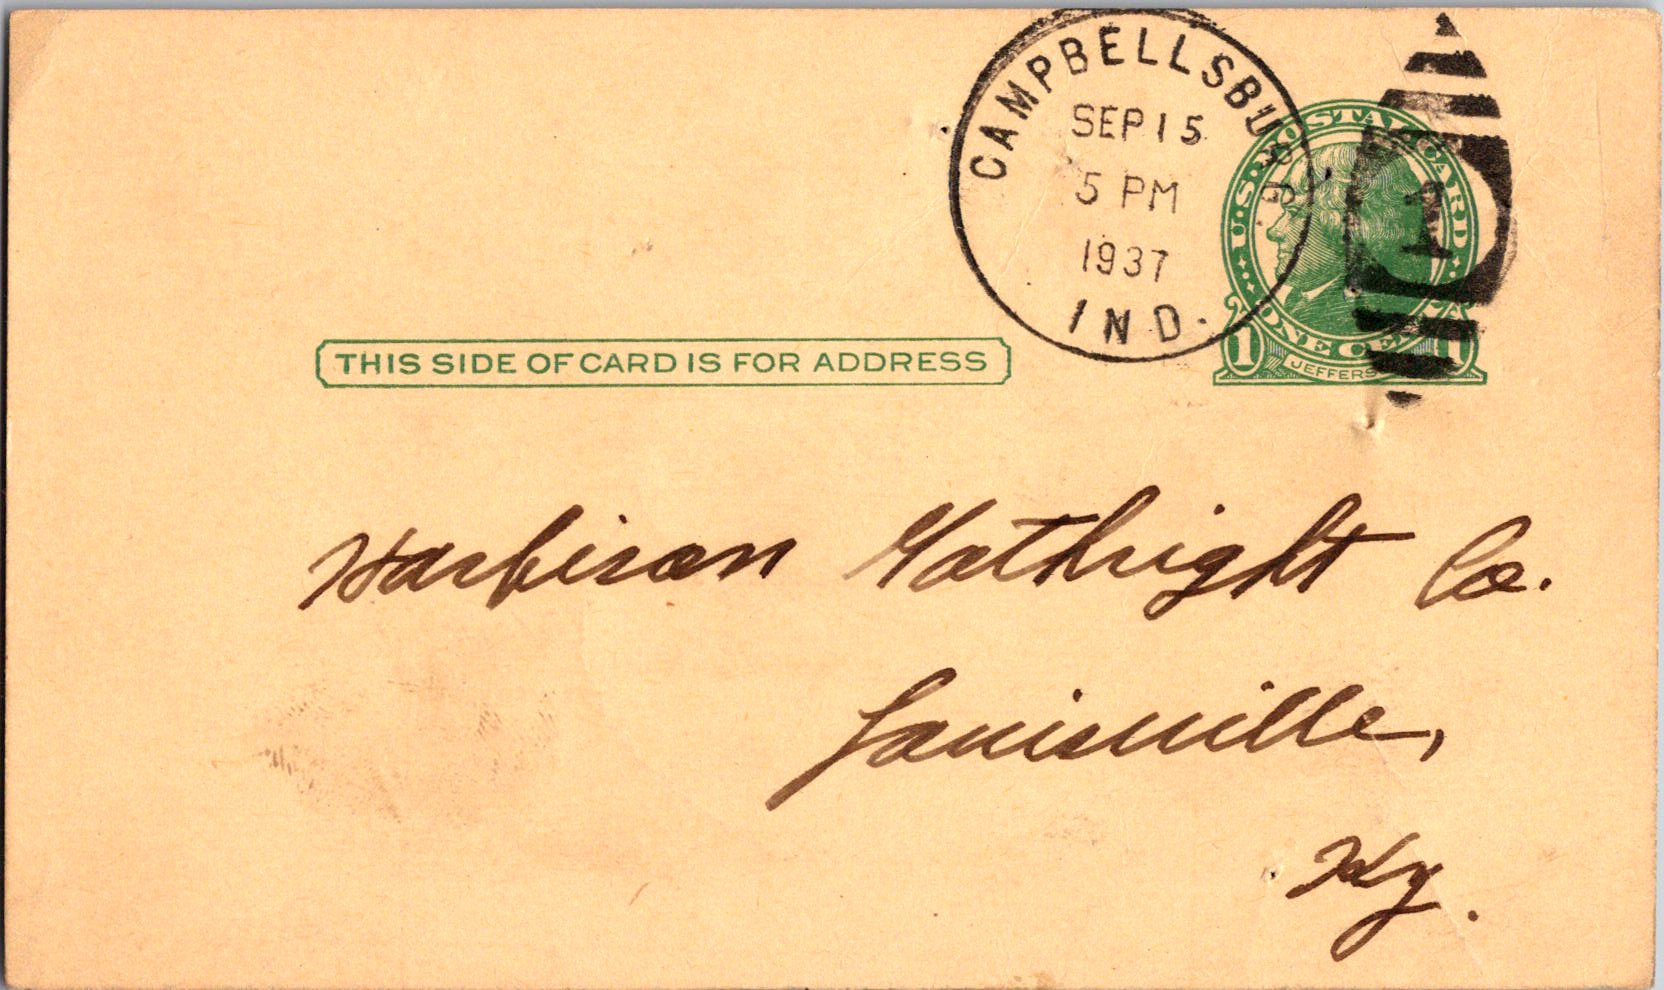 CAMPBELLSBURG
SEP 15
5 PM
1937
IND.
U.S. POSTAL CARD
1
ONE CE
1
JEFFERS
THIS SIDE OF CARD IS FOR ADDRESS
Harbison Gathright Co.
Louisville,
Ky.